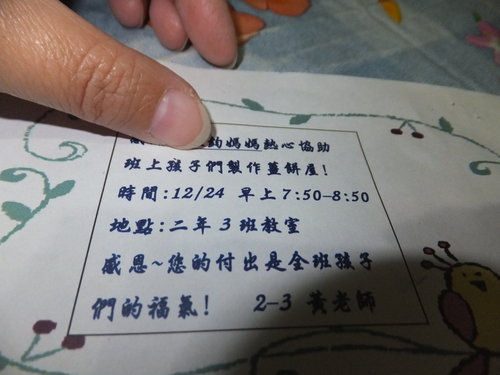 媽媽熱心協助
班上孩子們製作薑餅屋!
時間:12/24 早上7:50-8:50
地點:二年3班教室
感恩~您的付出是全班孩子
們的福氣! 2-3 黃老師